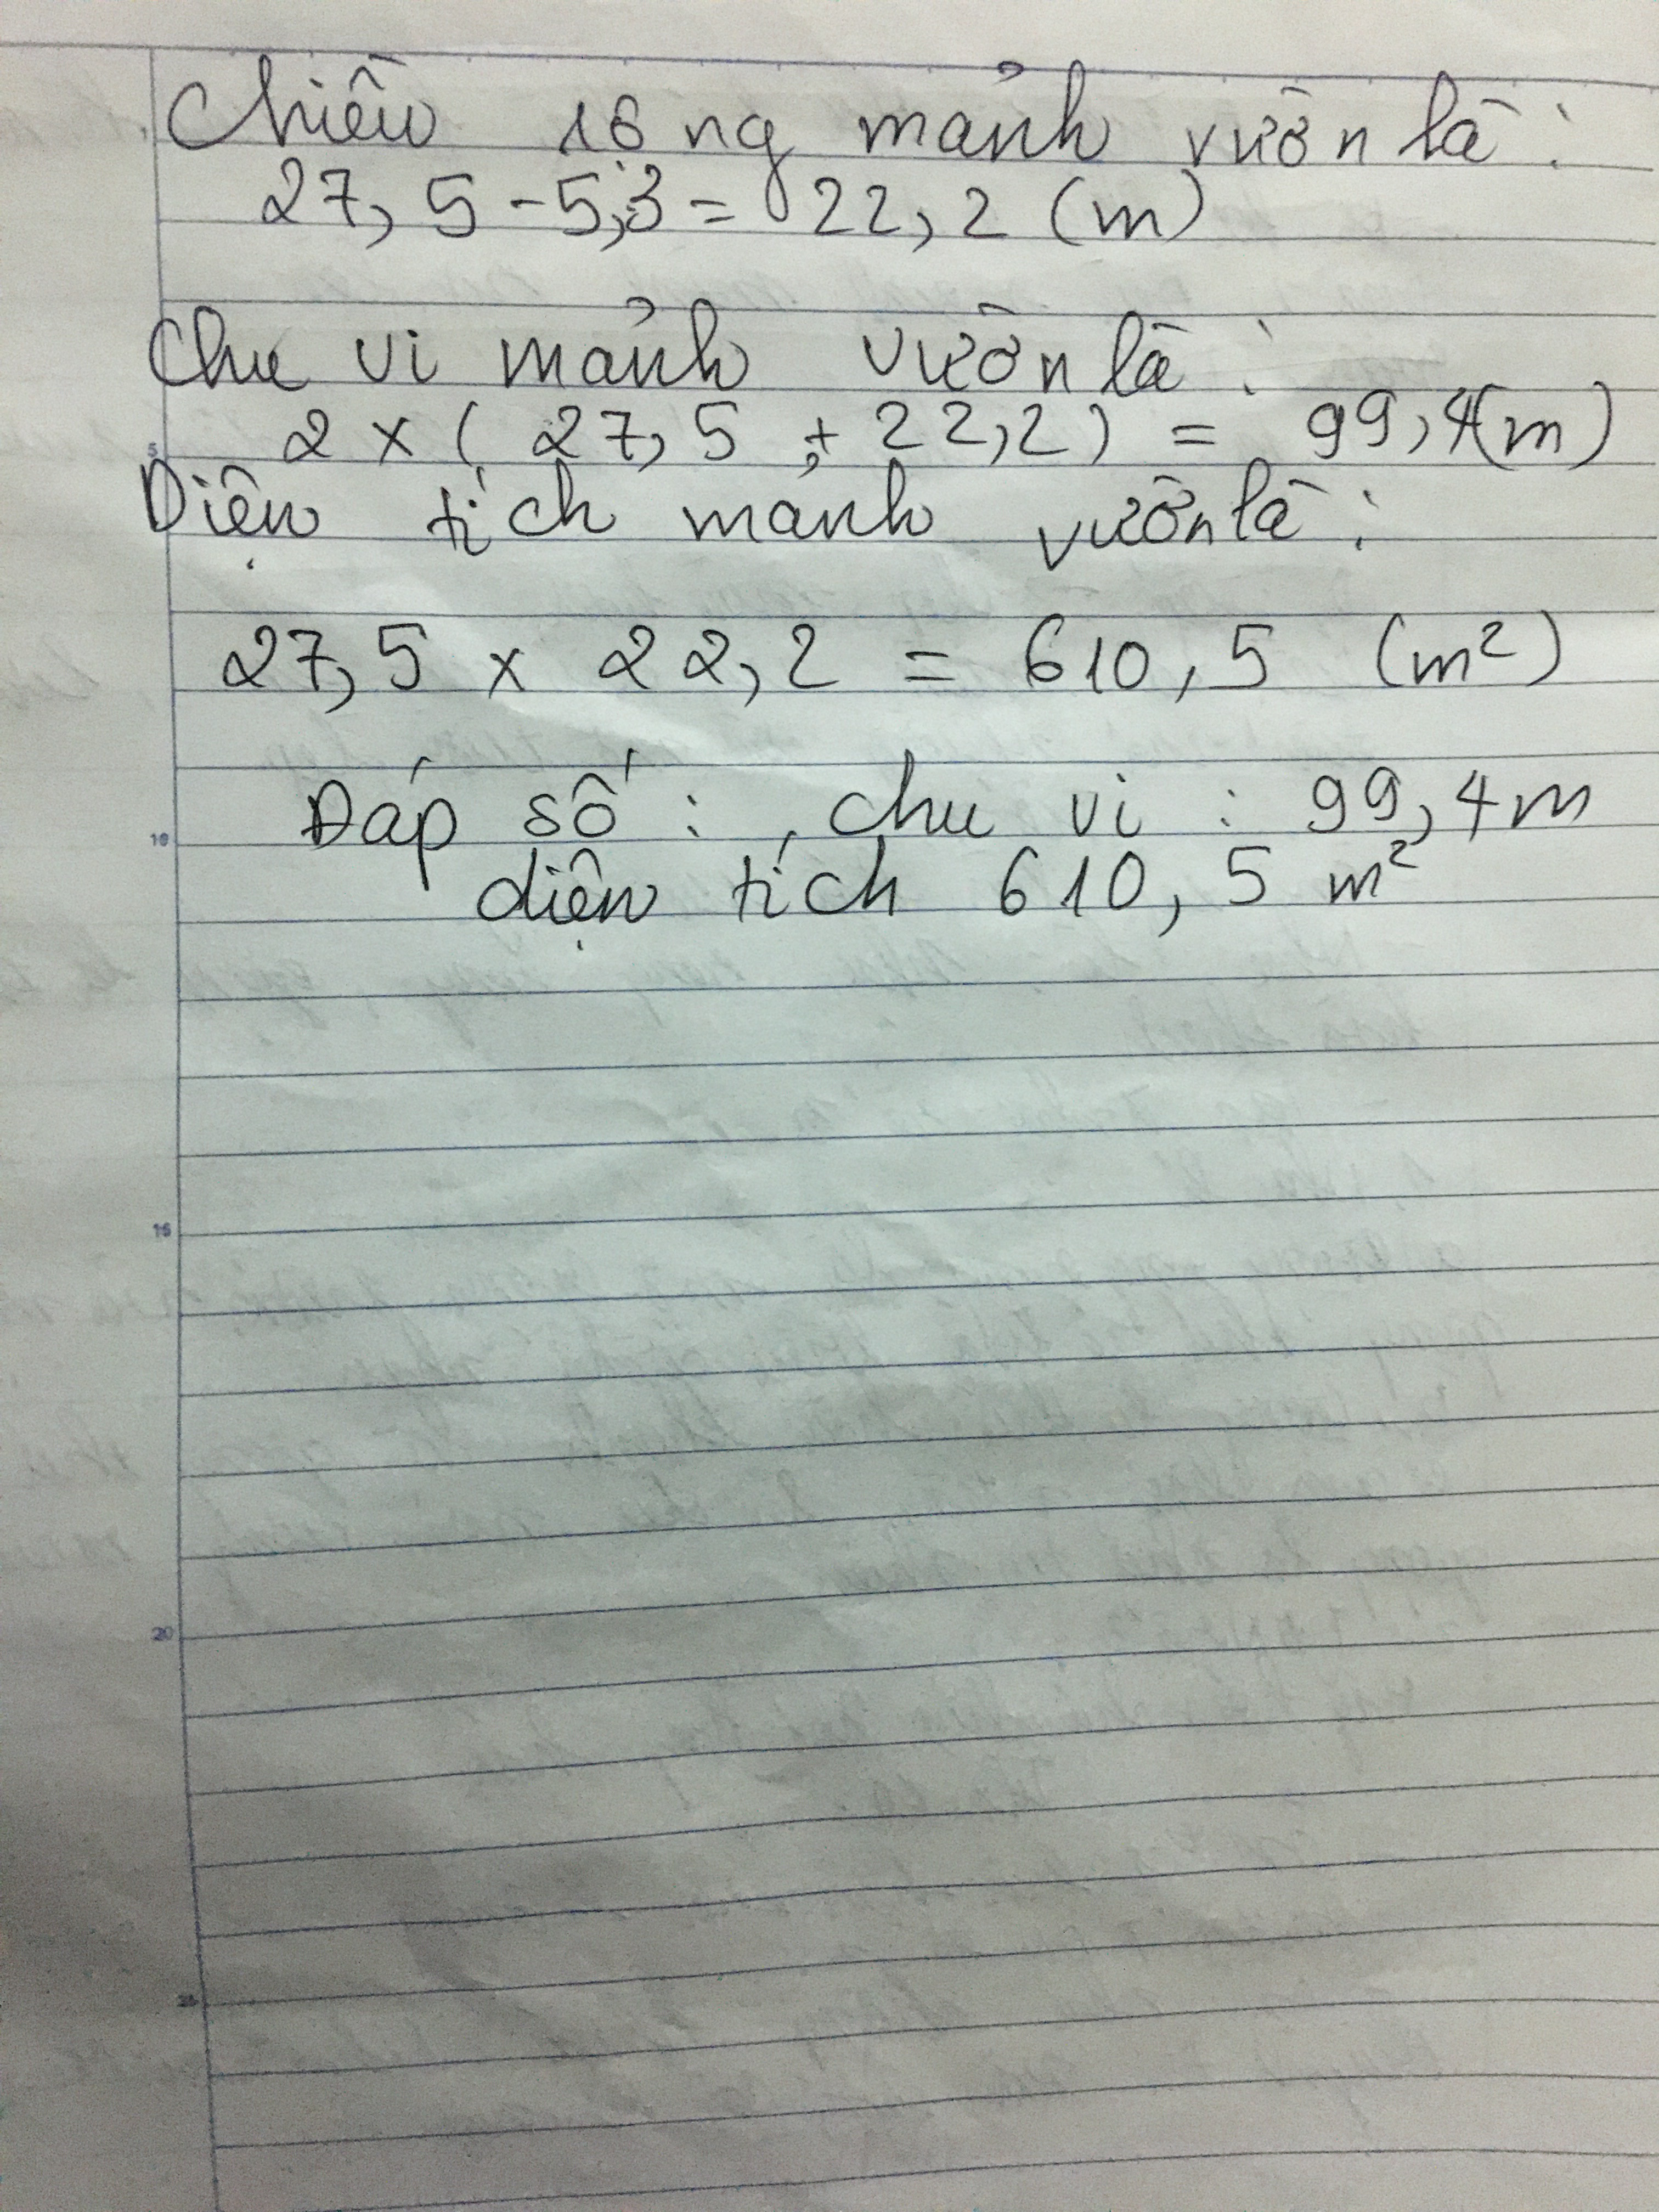 Chiều rộng mảnh vườn là:
27,5 - 5,3 = 22,2 (m)
Chu vi mảnh vườn là:
2 x ( 27,5 + 22,2) = 99,4(m)
Diện tích mảnh vườn là:
27,5 x 22,2 = 610,5 (m²)
Đáp số: chu vi: 99,4m
diện tích 610,5 m²
5
10
15
20
25